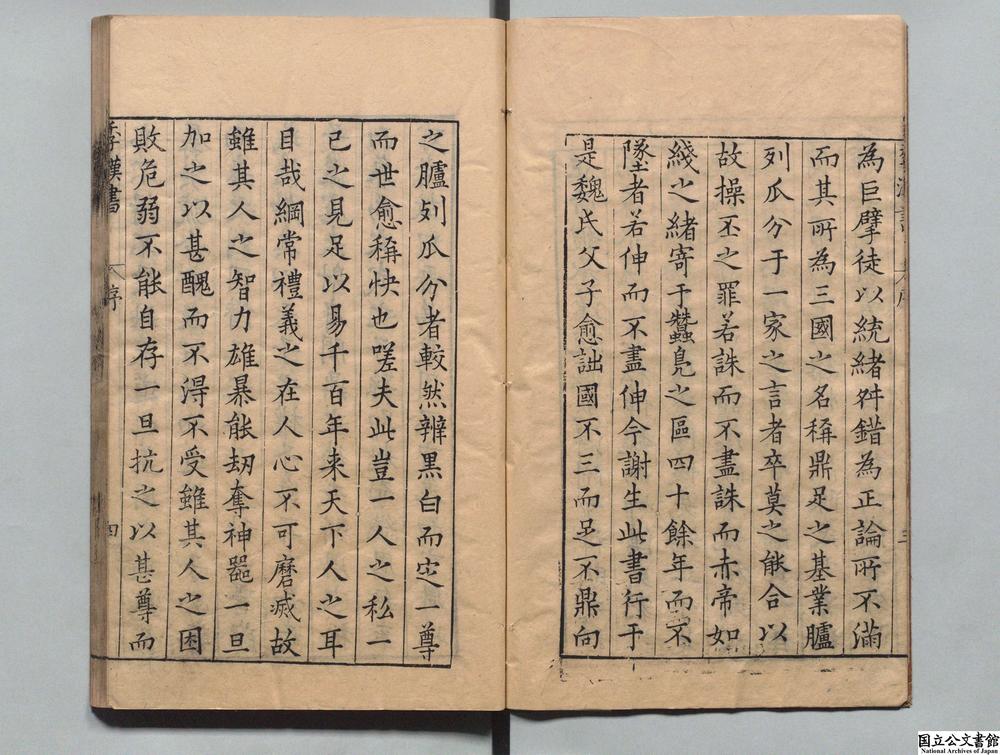 為巨擘徒以統緒舛錯為正論所不滿
而其所為三國之名稱鼎足之基業臚
列瓜分于一家之言者卒莫之能合以
故操丕之罪若誅而不盡誅而赤帝如
綫之緒寄于蠶鳧之區四十餘年而不
墜者若伸而不盡伸今謝生此書行于
是魏氏父子愈詘國不三而足不鼎向
之臚列瓜分者較然辨黑白而定一尊
而世愈稱快也嗟夫此豈一人之私一
已之見足以易千百年来天下人之耳
目哉綱常禮義之在人心不可磨滅故
雖其人之智力雄暴能劫奪神器一旦
加之以甚醜而不得不受雖其人之困
敗危弱不能自存一旦抗之以甚尊而
季漢書 序 四
国立公文書館
National Archives of Japan